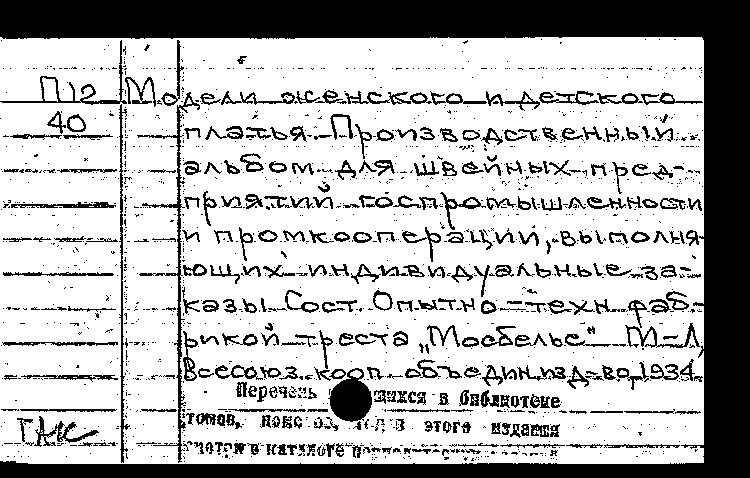 П12 Модели женского и детского
40 платья. Производственный
альбом для швейных пред-
приятий госпромышленности
и промкооперации, выполня-
ющих индивидуальные за-
казы. Сост. Опытно-техн. фаб-
рикой треста „Мосбелье“ М-Л,
Всесоюз. кооп. объедин. изд-во, 1934
Перечень в библиотеке
томов, этого издания
смотри в каталоге